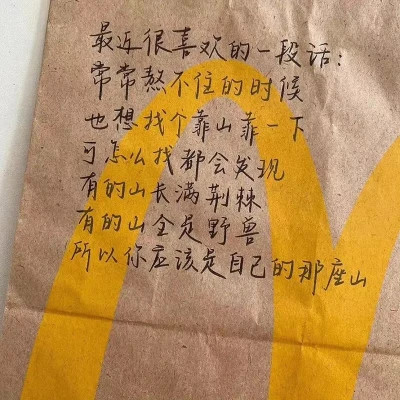 最近很喜欢的一段话：
常常熬不住的时候
也想找个靠山靠一下
可怎么找都会发现
有的山长满荆棘
有的山全是野兽
所以你应该是自己的那座山